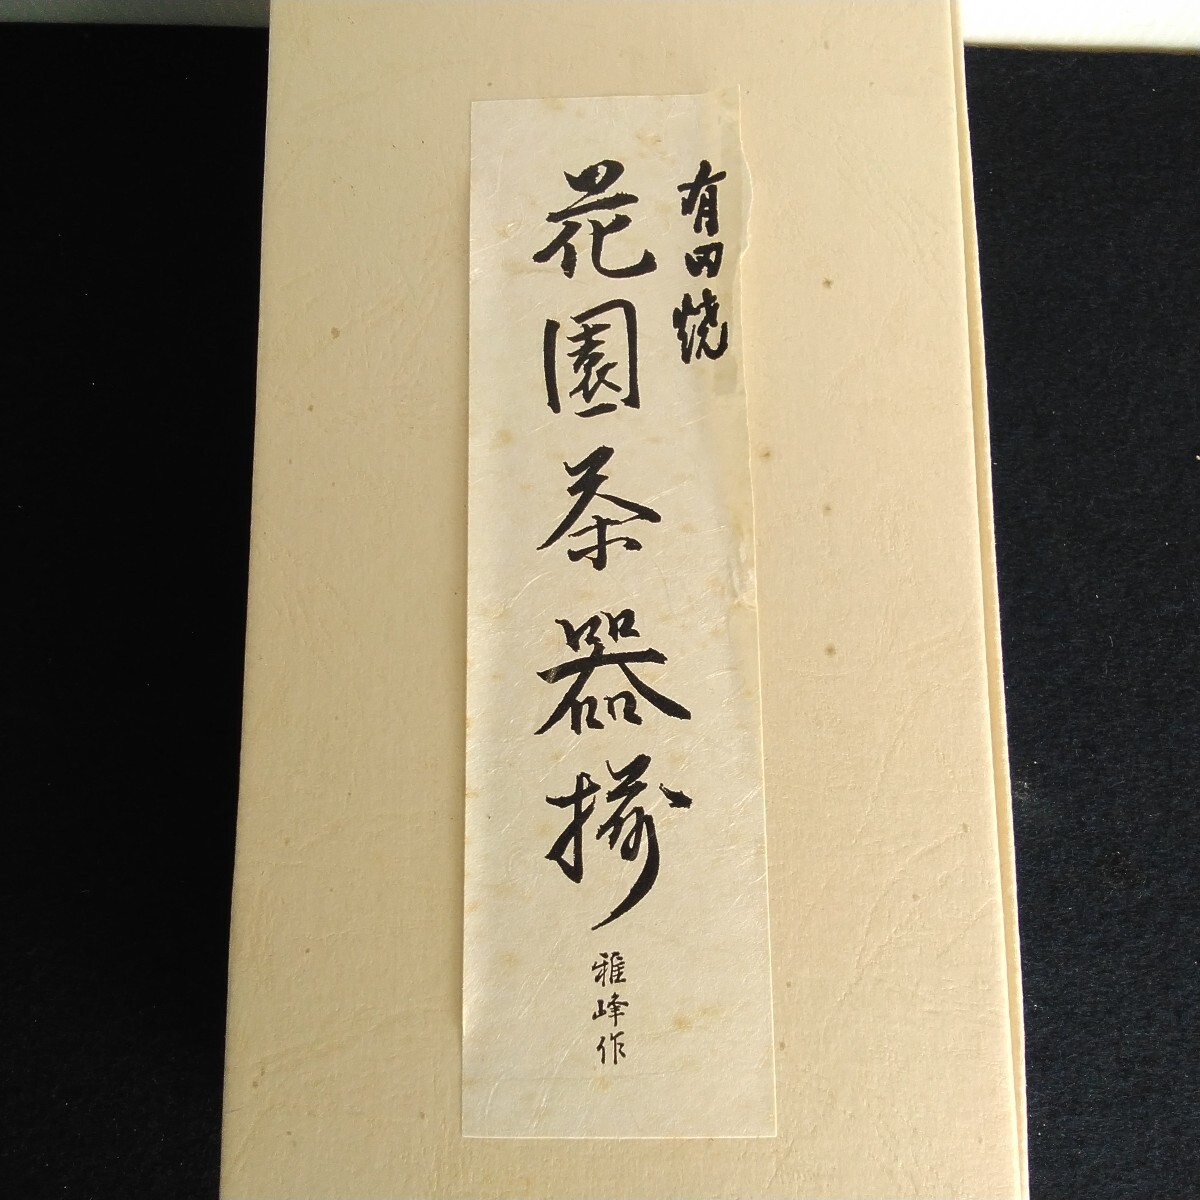 有田焼
花園茶器揃
雅峰作